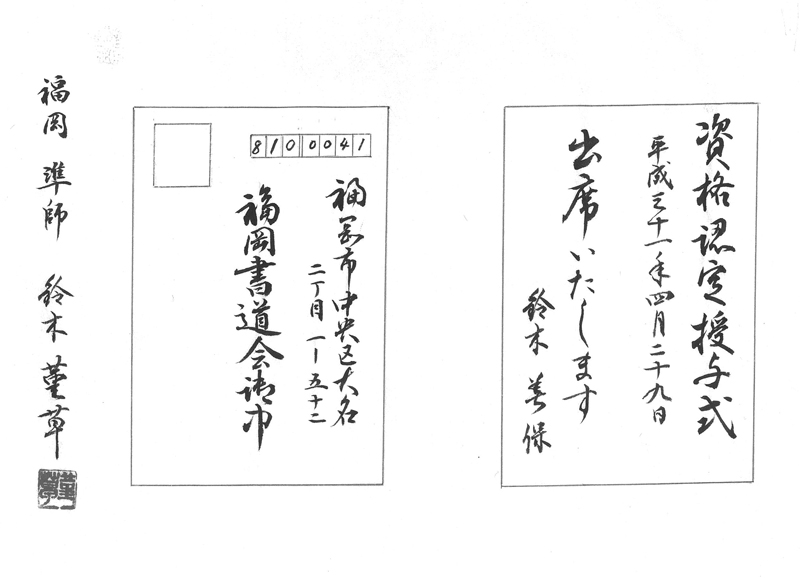 資格認定授与式
平成三十一年四月二十九日
出席いたします
鈴木美保
8100041
福岡市中央区大名
二丁目一ー五十二
福岡書道会御中
福岡 準師 鈴木菫草